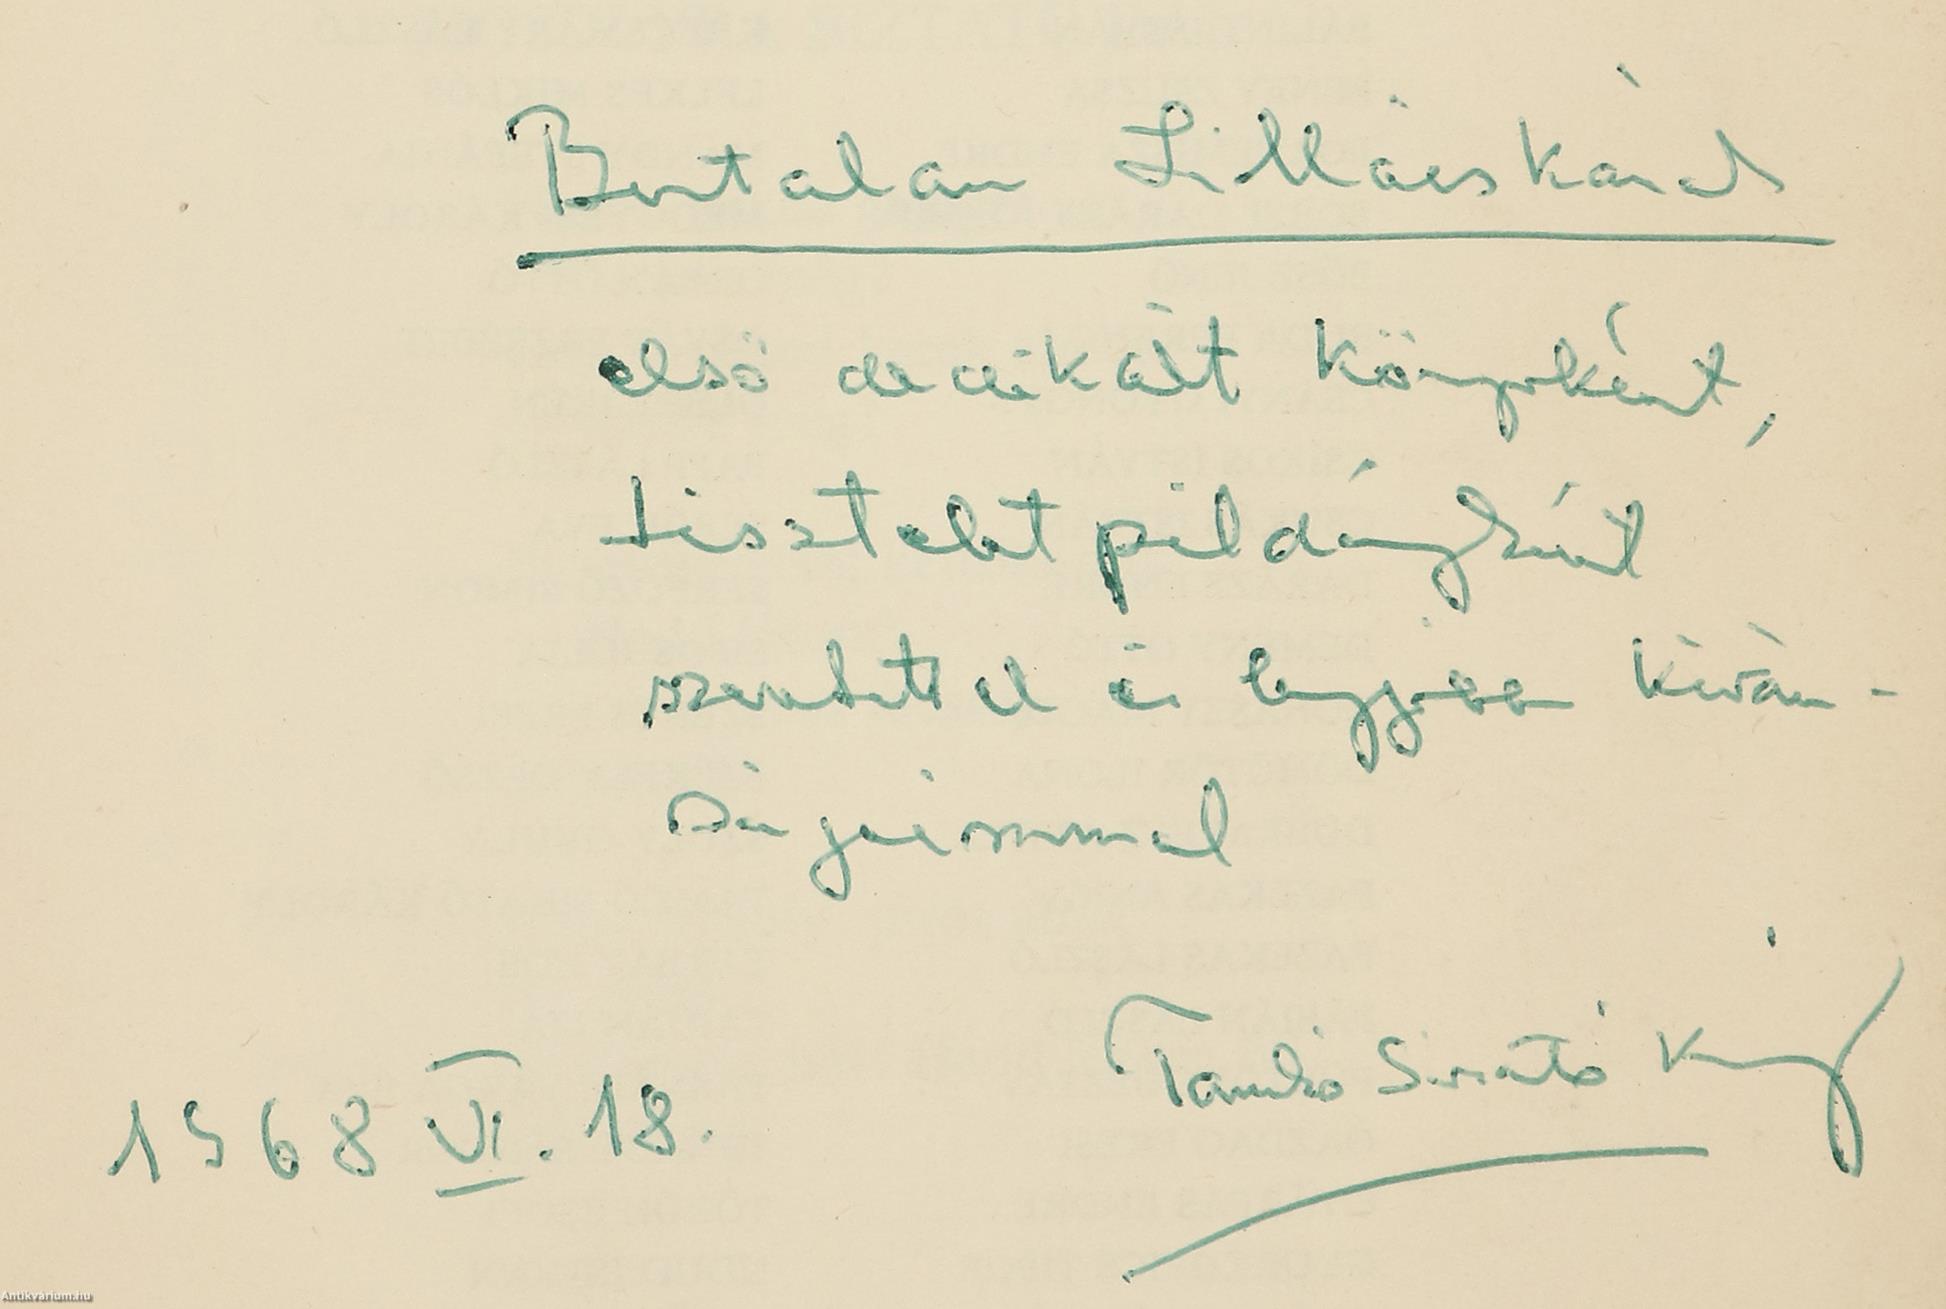 Bertalan Lilláéknál
első dedikált könyvként,
tisztelt példányként
szeretettel és legjobb kíván-
ságaimmal
Tamkó Sirató Károly
1968 VI. 18.
Antikvárium.hu